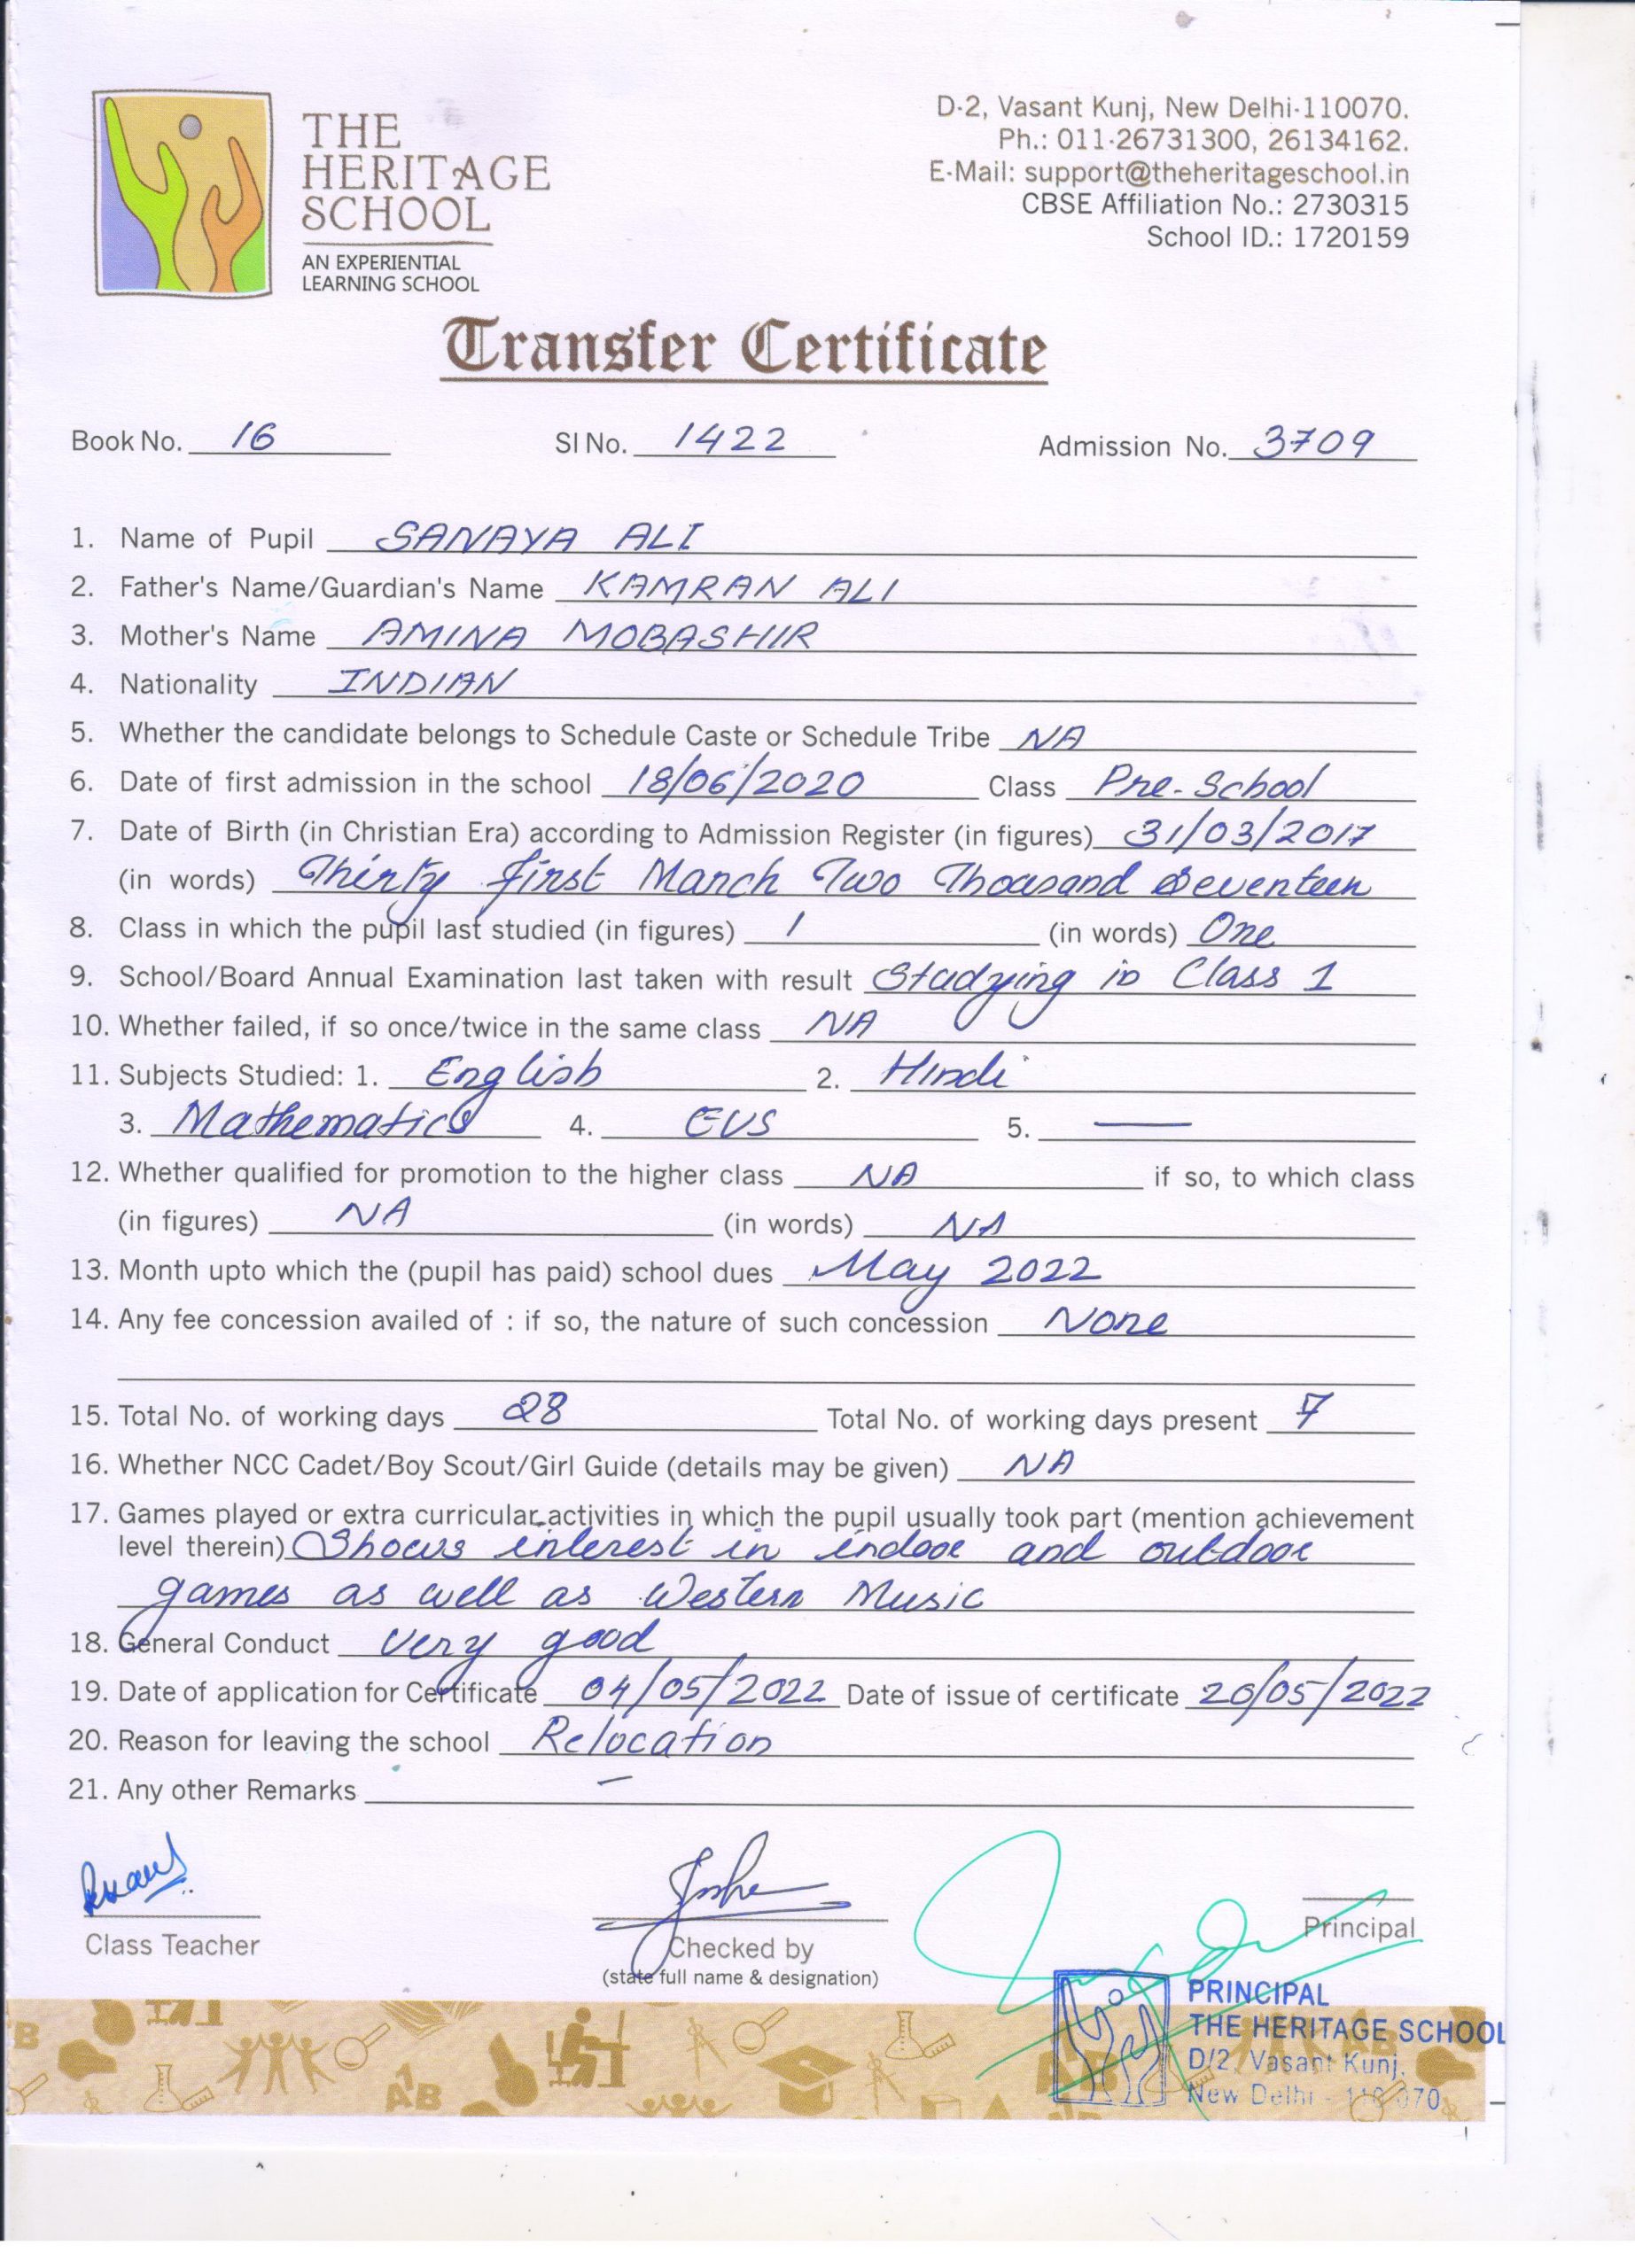 THE
HERITAGE
SCHOOL
AN EXPERIENTIAL
LEARNING SCHOOL
D-2, Vasant Kunj, New Delhi-110070.
Ph.: 011-26731300, 26134162.
E-Mail: support@theheritageschool.in
CBSE Affiliation No.: 2730315
School ID.: 1720159
Transfer Certificate
Book No. 16 Sl No. 1422 Admission No. 3709
1. Name of Pupil SANAYA ALI
2. Father's Name/Guardian's Name KAMRAN ALI
3. Mother's Name AMINA MOBASHIR
4. Nationality INDIAN
5. Whether the candidate belongs to Schedule Caste or Schedule Tribe NA
6. Date of first admission in the school 18/06/2020 Class Pre-School
7. Date of Birth (in Christian Era) according to Admission Register (in figures) 31/03/2017
(in words) Thirty first March Two Thousand Seventeen
8. Class in which the pupil last studied (in figures) 1 (in words) One
9. School/Board Annual Examination last taken with result Studying in Class 1
10. Whether failed, if so once/twice in the same class NA
11. Subjects Studied: 1. English 2. Hindi
3. Mathematics 4. EVS 5. —
12. Whether qualified for promotion to the higher class NA if so, to which class
(in figures) NA (in words) NA
13. Month upto which the (pupil has paid) school dues May 2022
14. Any fee concession availed of : if so, the nature of such concession None
15. Total No. of working days 28 Total No. of working days present 7
16. Whether NCC Cadet/Boy Scout/Girl Guide (details may be given) NA
17. Games played or extra curricular activities in which the pupil usually took part (mention achievement
level therein) Shows interest in indoor and outdoor
games as well as Western Music
18. General Conduct very good
19. Date of application for Certificate 04/05/2022 Date of issue of certificate 20/05/2022
20. Reason for leaving the school Relocation
21. Any other Remarks —
Class Teacher
Checked by
(state full name & designation)
Principal
PRINCIPAL
THE HERITAGE SCHOOL
D/2, Vasant Kunj,
New Delhi - 110 070